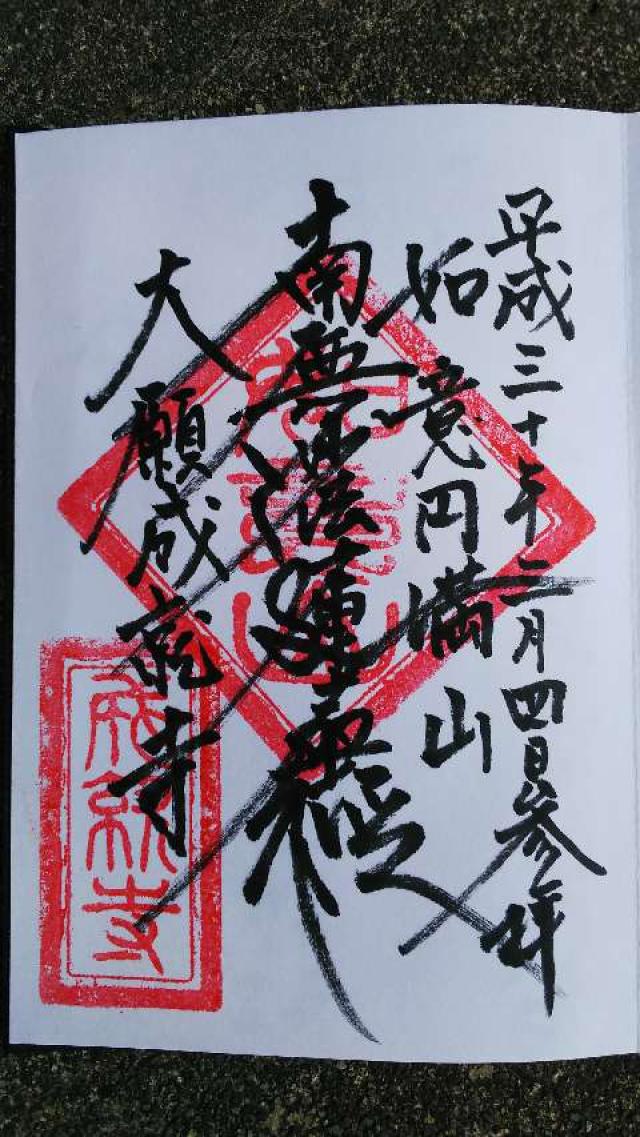 平成三十年二月四日参拝
如意円満山
南無妙法蓮華経
大願成就寺
成就寺